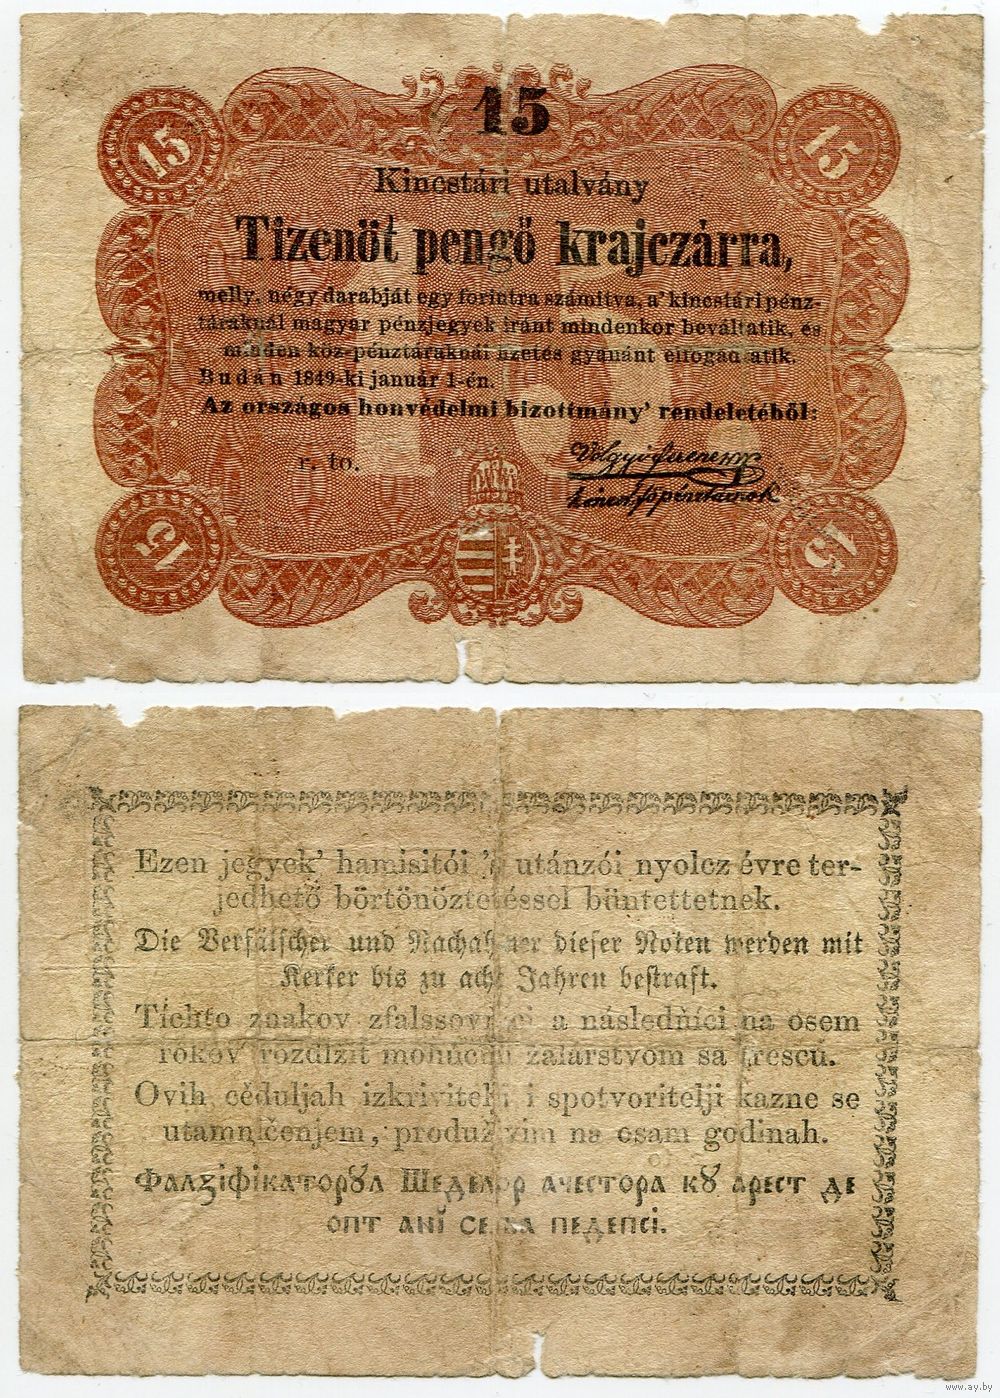 15
15
15
Kincstári utalvány
Tizenöt pengő krajczárra,
melly, négy darabját egy forintra számitva, a' kincstári pénz-
táraknál magyar pénzjegyek iránt mindenkor beváltatik, és
minden köz-pénztáraknál fizetés gyanánt elfogadtatik.
Budán 1849-ki január 1-én.
Az országos honvédelmi bizottmány' rendeletéből:
r. to.
15
15
Ezen jegyek' hamisitói 's utánzói nyolcz évre ter-
jedhető börtönöztetéssel büntettetnek.
Die Verfälscher und Nachahmer dieser Noten werden mit
Kerker bis zu acht Jahren bestraft.
Tíchto znakov zfalssovníci a následňíci na osem
rokov rozdlžiť mohúcím žalárstvom sa tresců.
Ovih cěduljah izkrivitelji i spotvoritelji kazne se
utamničenjem, produživim na osam godinah.
Фалзіфікаторꙋл Шеделор ачестора кꙋ арест де
опт анї се ва педепсі.
www.ay.by